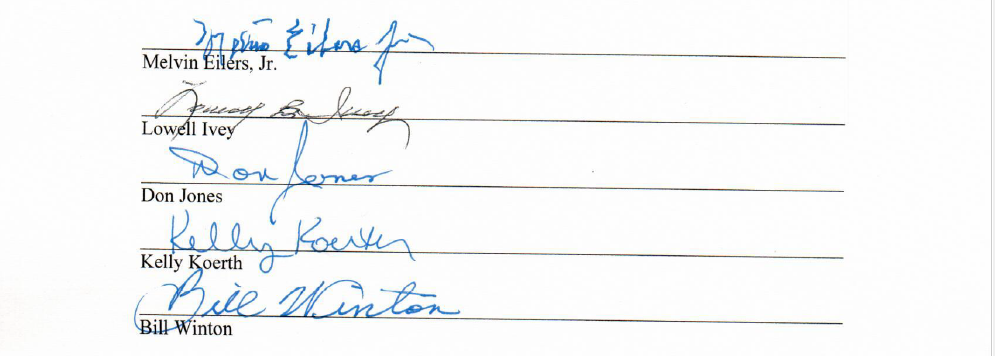 Melvin Eilers Jr
Melvin Eilers, Jr.
Lowell Ivey
Don Jones
Don Jones
Kelly Koerth
Kelly Koerth
Bill Winton
Bill Winton